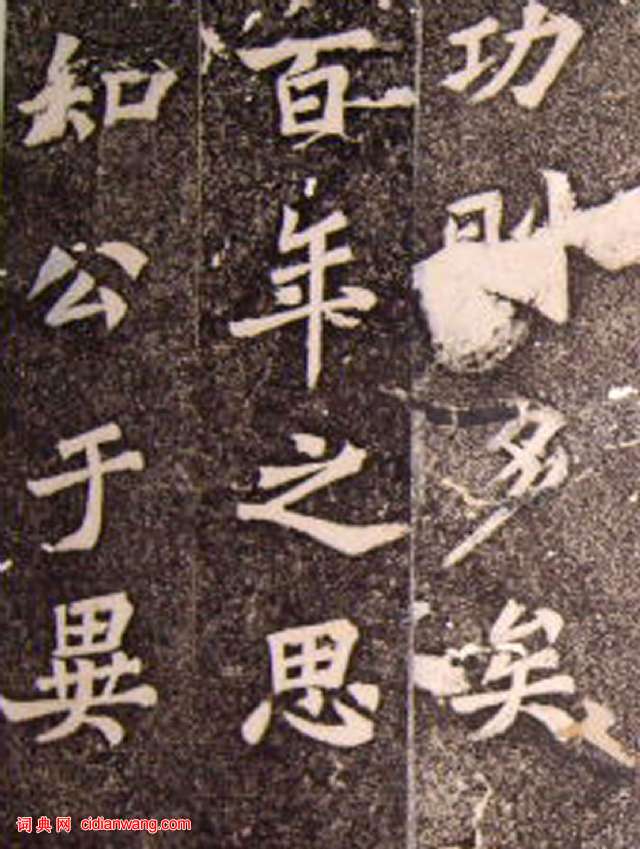 功則多矣
百年之思
知公于異
词典网 cidianwang.com